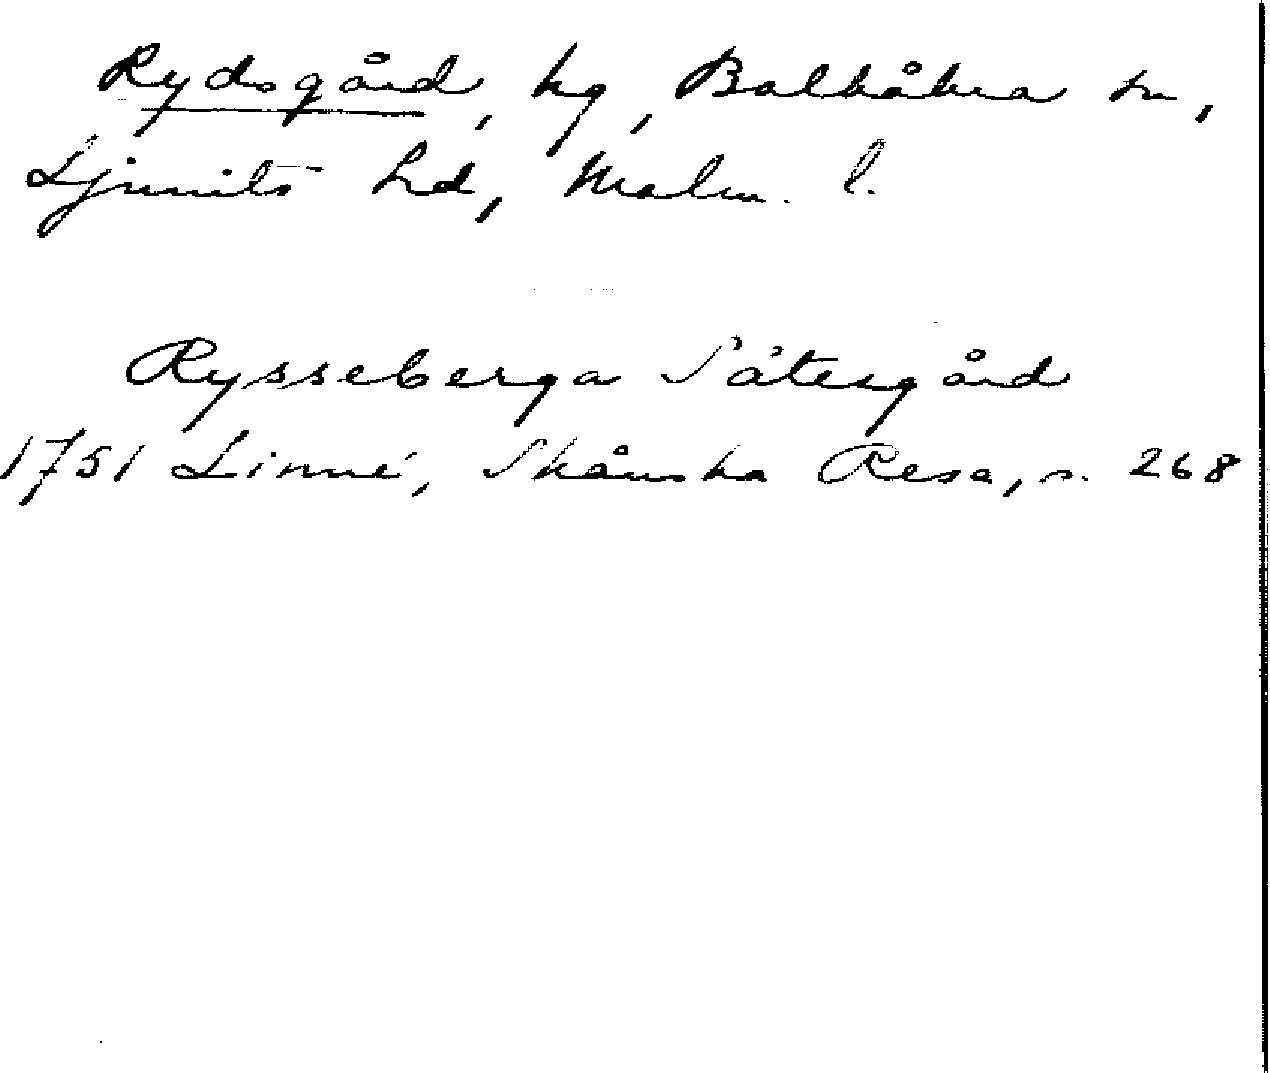 Rydsgård, hg, Balkåkra sn,
Ljunits hd, Malm. l.
Rysseberga Säteigård
1751 Linné, Skånska Resa, s. 268